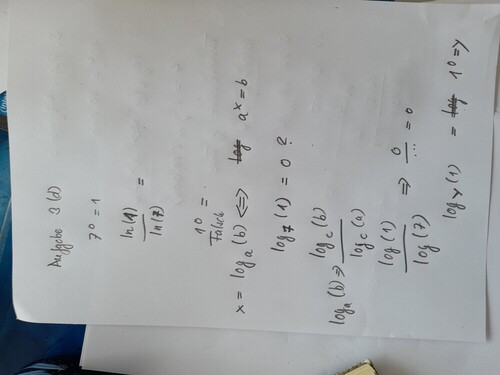 Aufgabe 3 (d)
7⁰ = 1
ln(1) / ln(7) =
1⁰ =
Falsch
x = logₐ(b) ⇔ aˣ = b
log₇(1) = 0 ?
logₐ(b) ⇒ log_c(b) / log_c(a)
log(1) / log(7) ⇒ 0 / ... = 0
log y(1) = 1⁰ = y